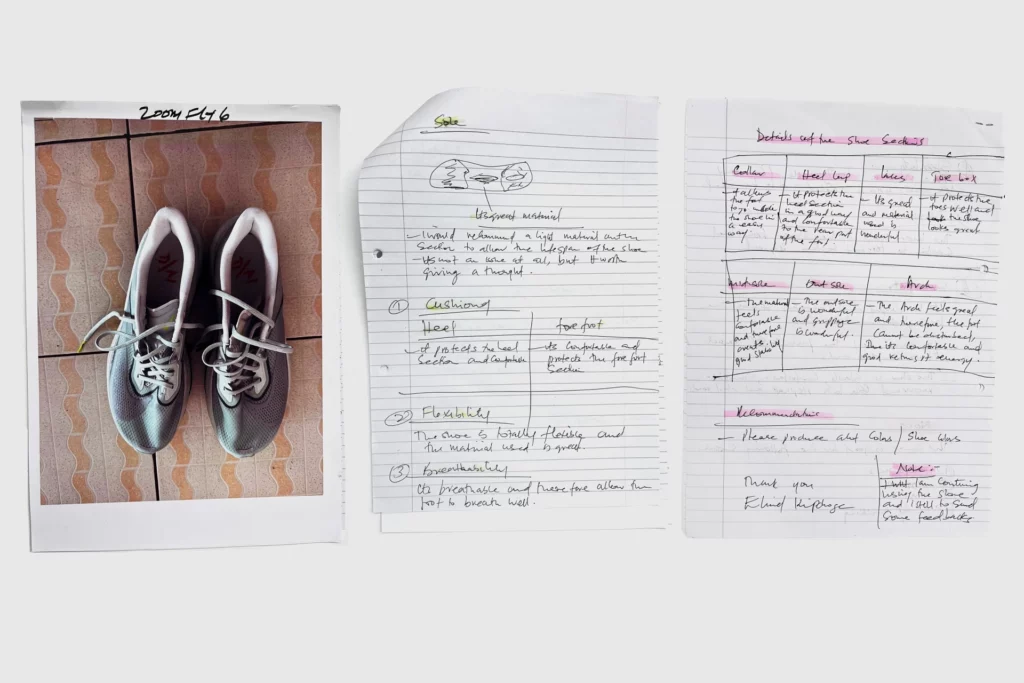 Zoom Fly 6
Sole
Its great material
- I would recommend a light material on the
section to allow the lifespan of the shoe
- Its not an issue at all, but it worth
giving a thought.
① Cushioning
Heel
- it protects the heel
section and comfortable
fore foot
- its comfortable and
protects the fore foot
section
② Flexibility
The shoe is totally flexible and
the material used is great.
③ Breathability
Its breathable and therefore allow the
foot to breath well.
Details of the Shoe Sections
Collar
- it allows
the foot
to go inside
the shoe in
a easy
way
Heel
- it protects the
heel section
in a good way
and comfortable
to the rear part
of the foot
laces
- Its great
and material
used is
wonderful
Toe box
- it protects the
toes well and
the shoe
looks great
- The material
feels
comfortable
and therefore
good
Out sole
- The outsole
is wonderful
and grippage
is wonderful.
Arch
- The Arch feels great
and therefore, the foot
cannot be
its comfortable and
good energy.
Recommendations
- Please produce alot Colors / Shoe
Thank you
Eliud Kipchoge
Note:-
I am continuing
using the shoe
and I still to send
some feedbacks